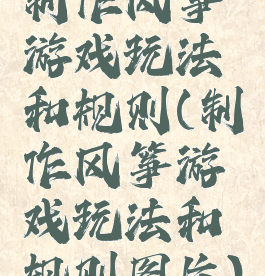 制作风筝
游戏玩法
和规则(制
作风筝游
戏玩法和
规则图片)